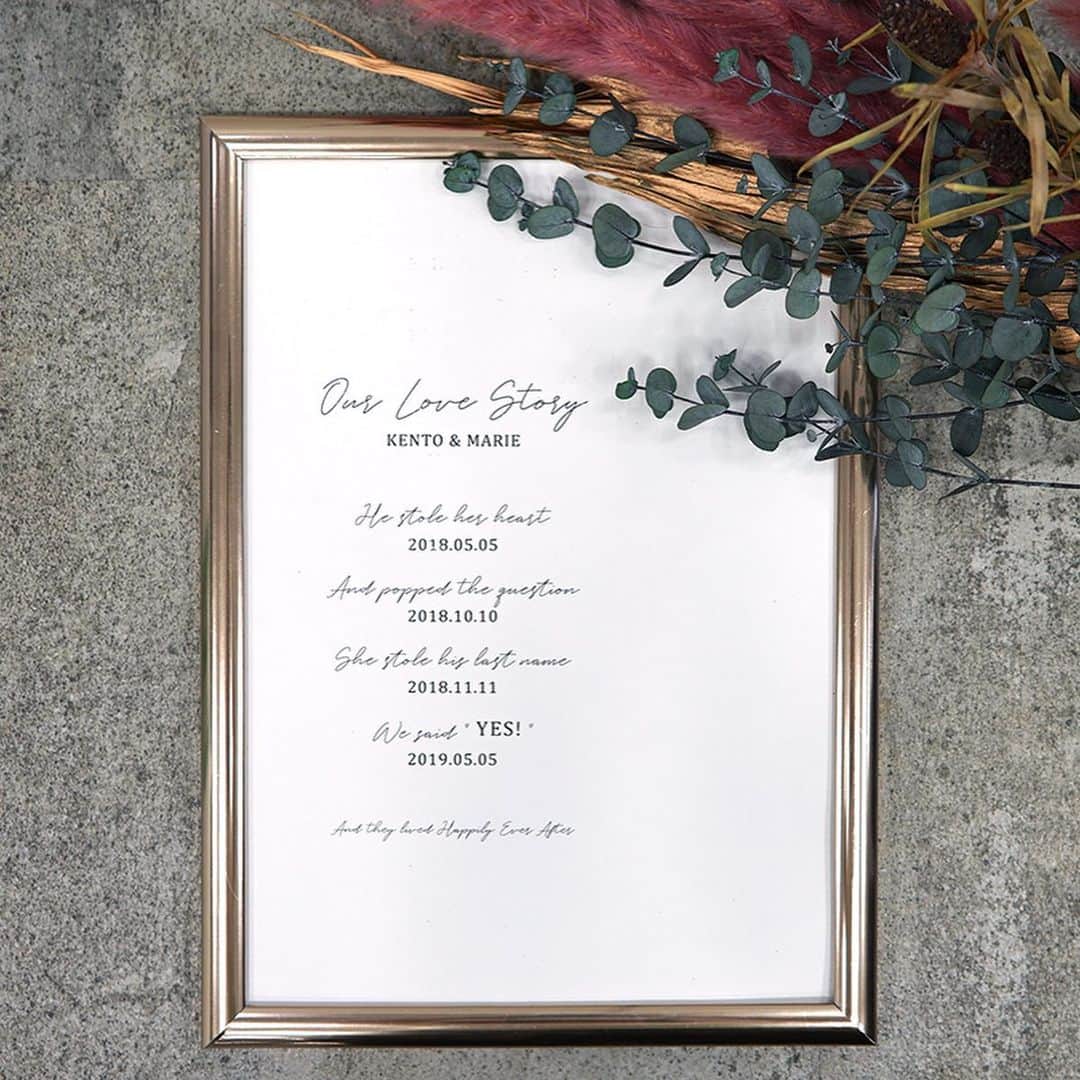 Our Love Story
KENTO & MARIE
He stole her heart
2018.05.05
And popped the question
2018.10.10
She stole his last name
2018.11.11
We said " YES! "
2019.05.05
And they lived Happily Ever After